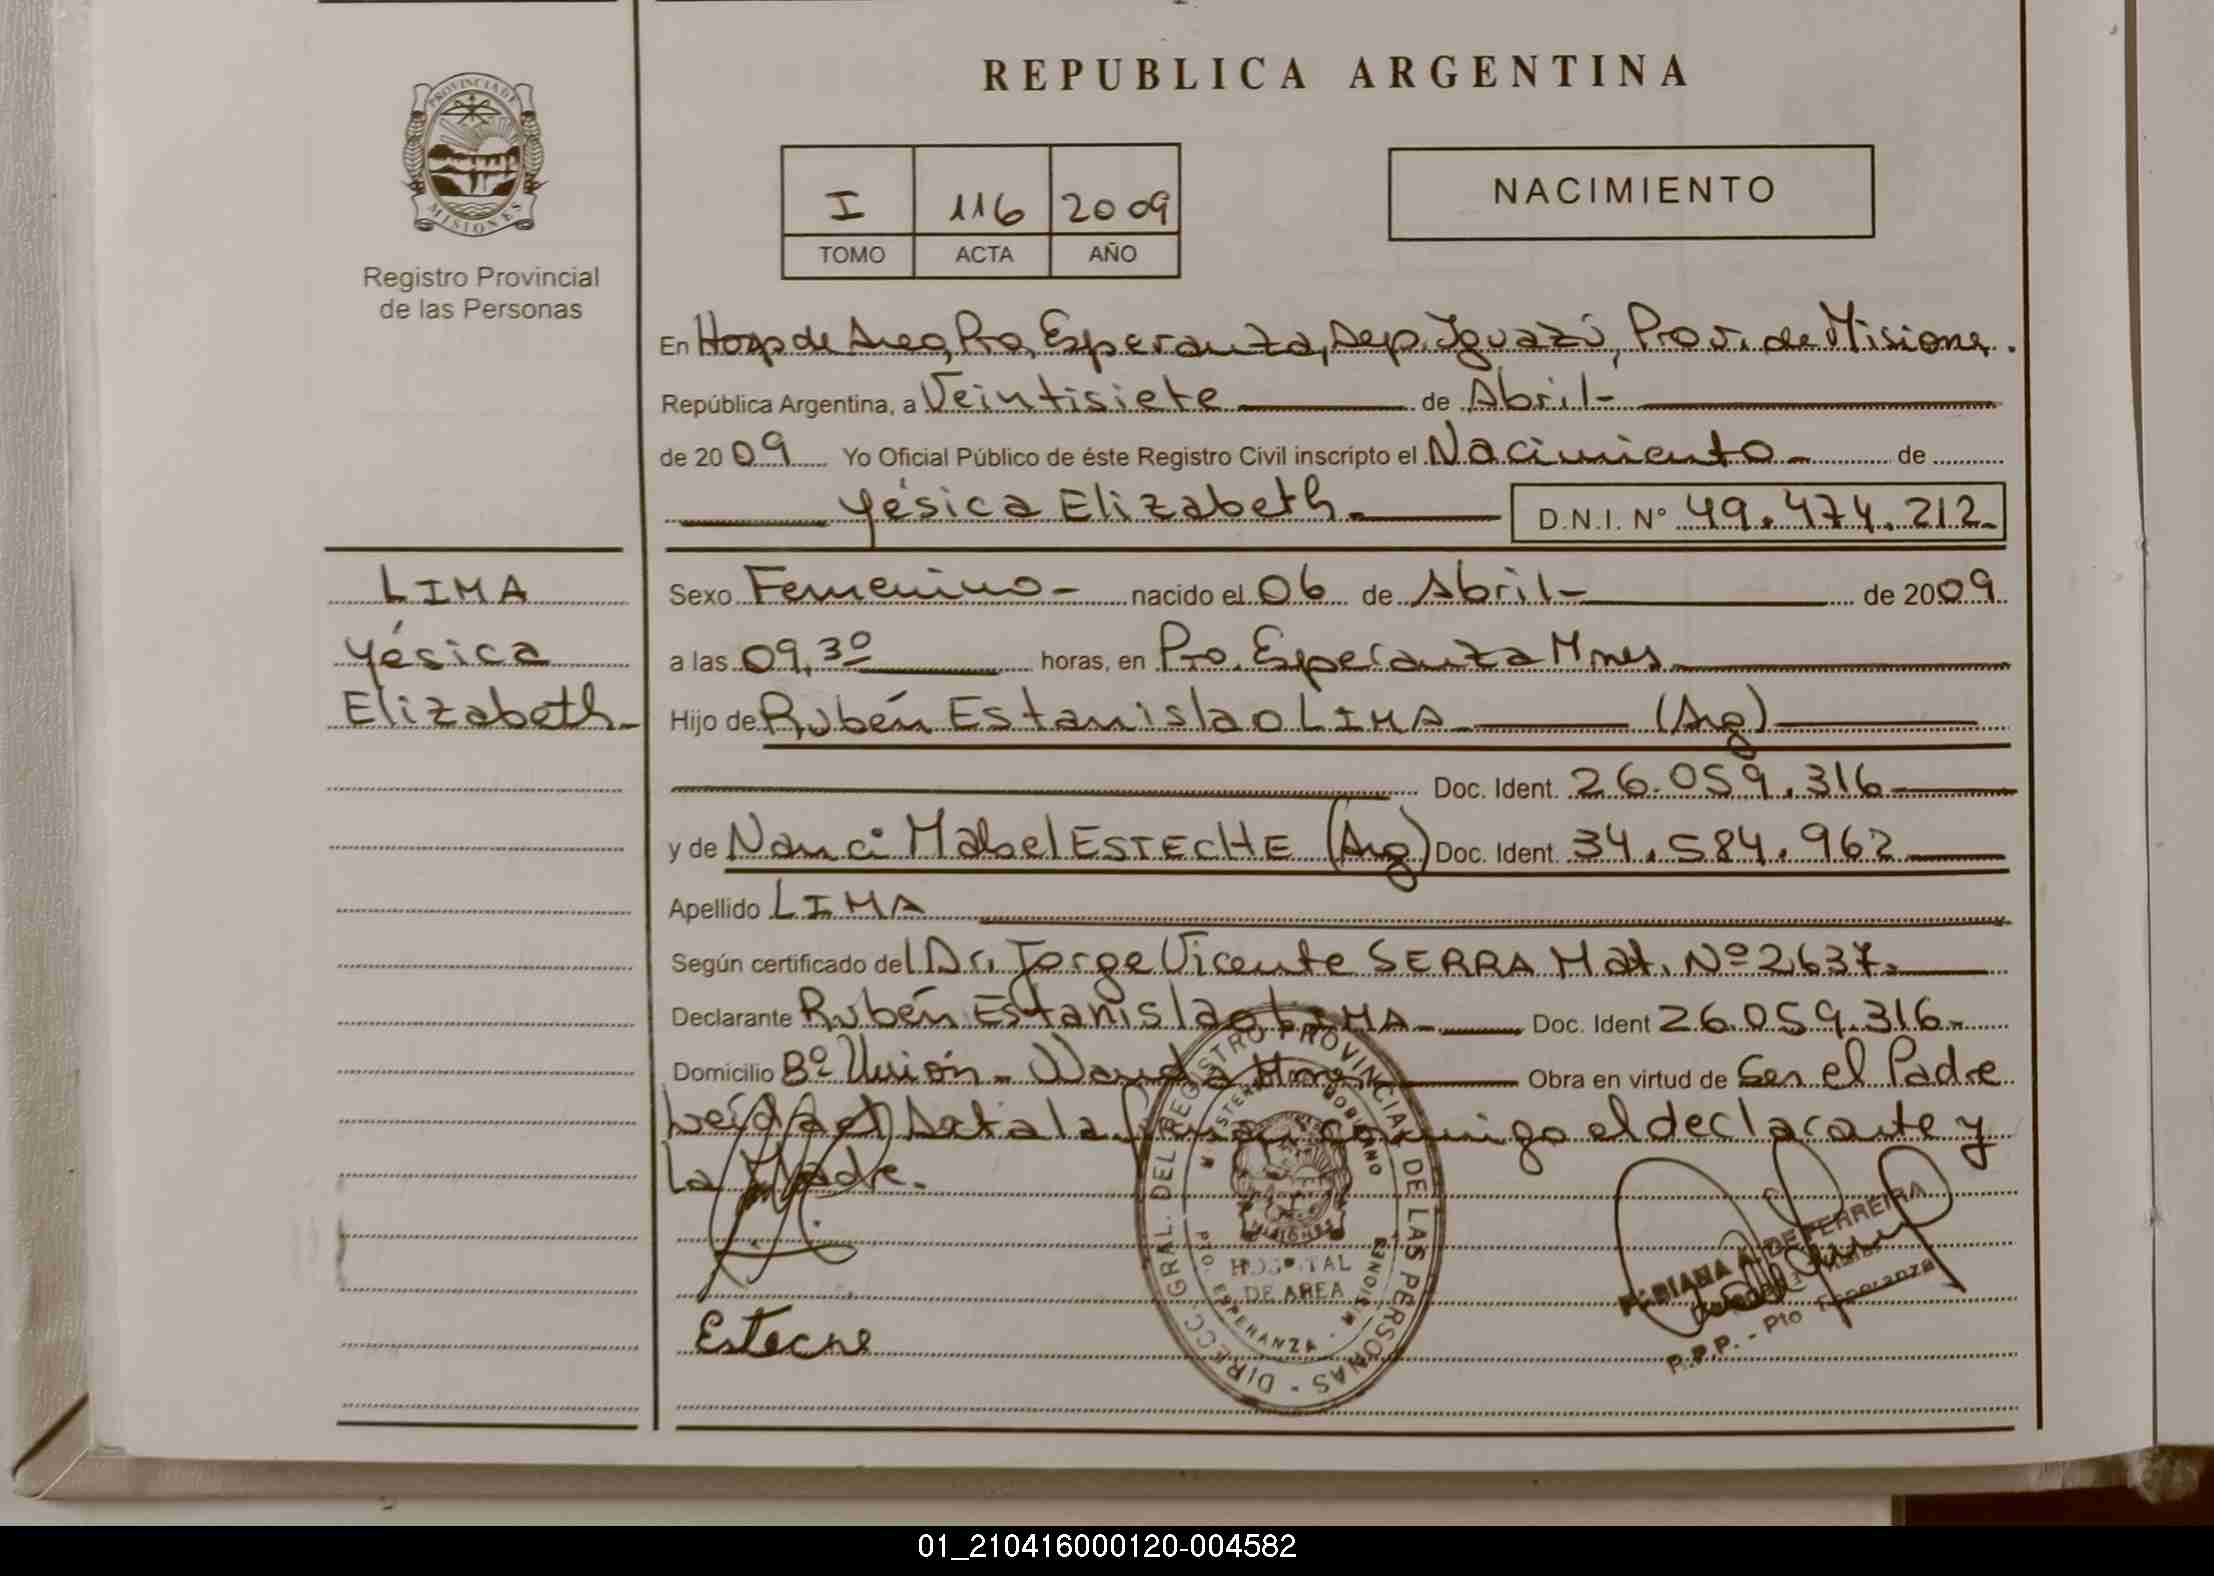 PROVINCIA DE
MISIONES
Registro Provincial
de las Personas
REPUBLICA ARGENTINA
I 116 2009
TOMO ACTA AÑO
NACIMIENTO
En Hosp de Area, Pto, Esperanza, Dep. Iguazú, Prov. de Misiones.
República Argentina, a Veintisiete de Abril-
de 2009 Yo Oficial Público de éste Registro Civil inscripto el Nacimiento - de
Yésica Elizabeth. D.N.I. Nº 49.474.212-
LIMA
Yésica
Elizabeth-
Sexo Femenino- nacido el 06 de Abril- de 2009
a las 09,30 horas, en Pto. Esperanza Mnes
Hijo de Rubén Estanislao LIMA (Arg)
Doc. Ident. 26.059.316
y de Nanci Mabel ESTECHE (Arg) Doc. Ident. 34.584.962
Apellido LIMA
Según certificado del Dr. Jorge Vicente SERRA Mat. Nº 2637-
Declarante Rubén Estanislao LIMA Doc. Ident 26.059.316-
Domicilio Bº Unión - Wanda Mnes Obra en virtud de Ser el Padre
Leída el Acta la firman conmigo el declarante y
La Madre.
Esteche
DIRECC. GRAL. DEL REGISTRO PROVINCIAL DE LAS PERSONAS -
MINISTERIO GOBIERNO
MISIONES
HOSPITAL
DE AREA
PTO. ESPERANZA - MISIONES
FABIANA A. DE FERREIRA
R.P.P. - Pto Esperanza
01_210416000120-004582